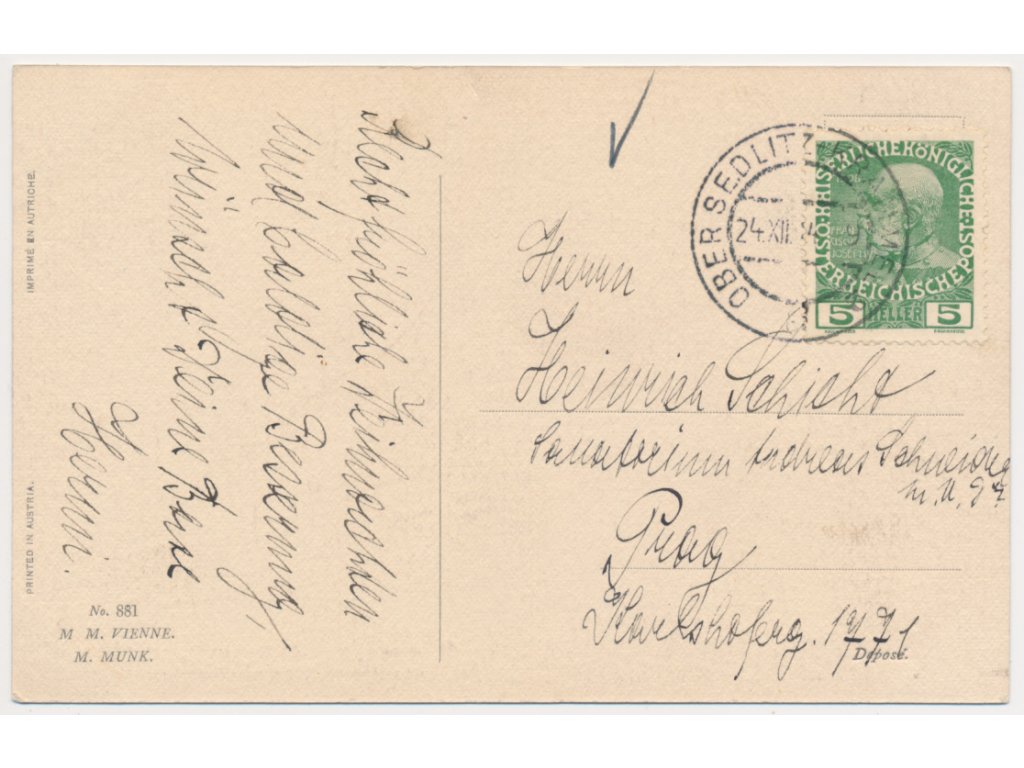 IMPRIMÉ EN AUTRICHE.
PRINTED IN AUSTRIA.
Recht fröhliche Weihnachten
und baldige Besserung,
wünscht Deine
Hermi.
No. 881
M M. VIENNE.
M. MUNK.
OBERSEDLITZ
24.XII.
KAISERLICHE KÖNIGLICHE
ÖSTERREICHISCHE POST
FRANZ
JOSEF I
5 HELLER 5
Herrn
Heinrich Schicht
Sanatorium Andreas Schneider
Prag
Karlshoferg. 1771
Déposé.